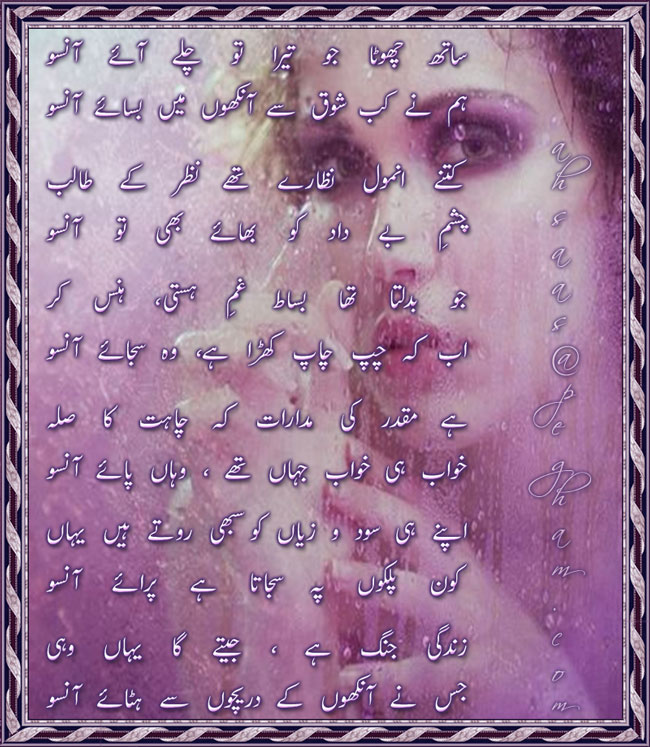 ساتھ چھوٹا جو تیرا تو چلے آئے آنسو
ہم نے کب شوق سے آنکھوں میں بسائے آنسو
کتنے انمول نظارے تھے نظر کے طالب
چشمِ بے داد کو بھائے بھی تو آنسو
جو بدلتا تھا بساط غمِ ہستی، ہنس کر
اب کہ چپ چاپ کھڑا ہے، وہ سجائے آنسو
ہے مقدر کی مدارات کہ چاہت کا صلہ
خواب ہی خواب جہاں تھے ، وہاں پائے آنسو
اپنے ہی سود و زیاں کو سبھی روتے ہیں یہاں
کون پلکوں پہ سجاتا ہے پرائے آنسو
زندگی جنگ ہے ، جیتے گا یہاں وہی
جس نے آنکھوں کے دریچوں سے ہٹائے آنسو
ahsaas@pegham.com